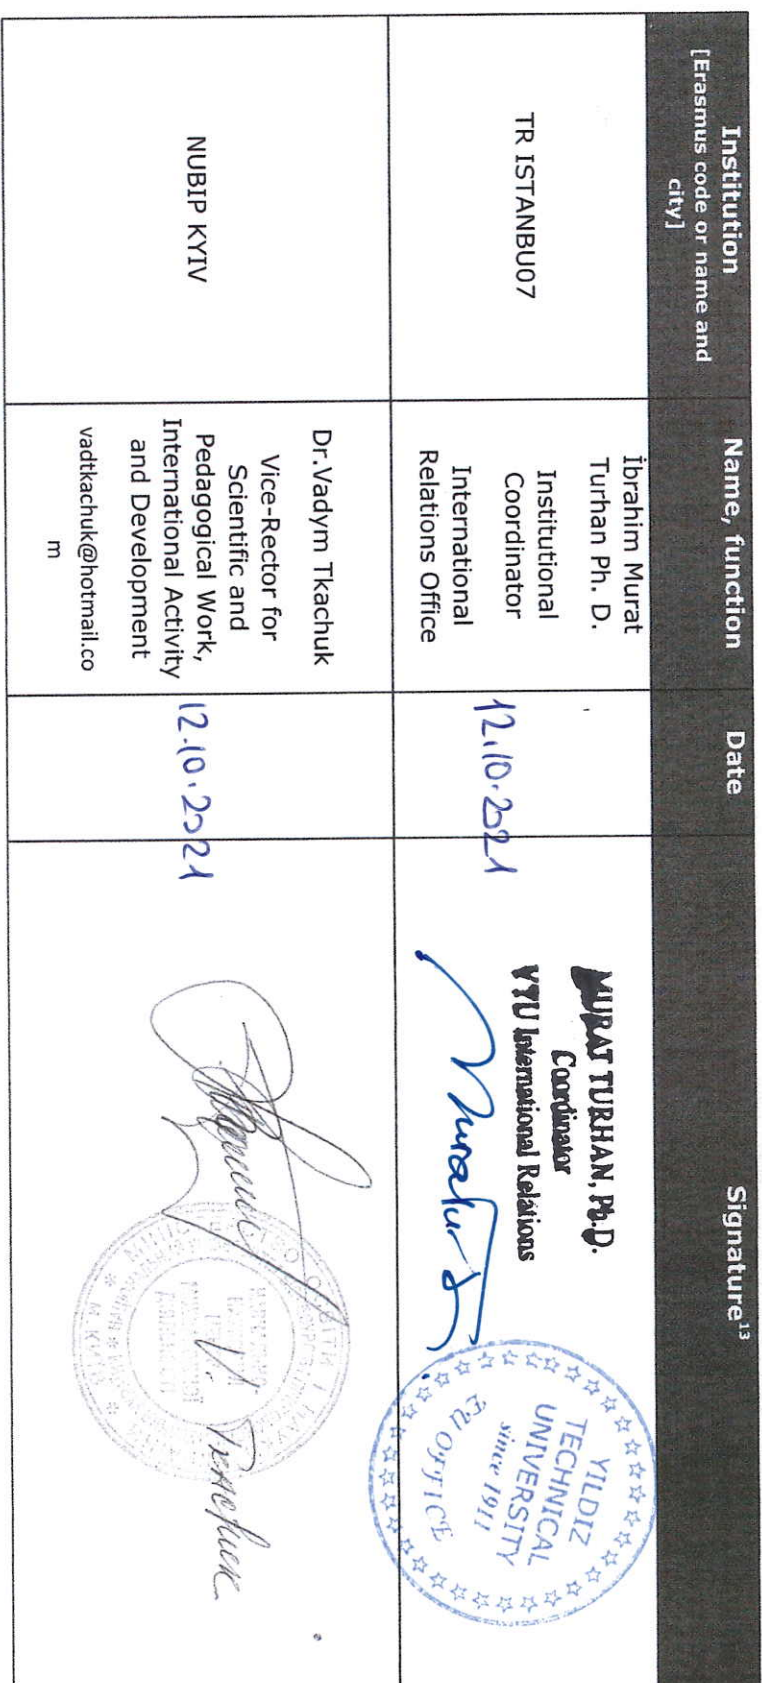 Institution
[Erasmus code or name and
city]
Name, function
Date
Signature13
TR ISTANBU07
İbrahim Murat
Turhan Ph. D.
Institutional
Coordinator
International
Relations Office
12.10.2021
MURAT TURHAN, Ph.D.
Coordinator
YTU International Relations
Murat
YILDIZ
TECHNICAL
UNIVERSITY
since 1911
EU OFFICE
NUBIP KYIV
Dr.Vadym Tkachuk
Vice-Rector for
Scientific and
Pedagogical Work,
International Activity
and Development
vadtkachuk@hotmail.co
m
12.10.2021
V. Tkachuk